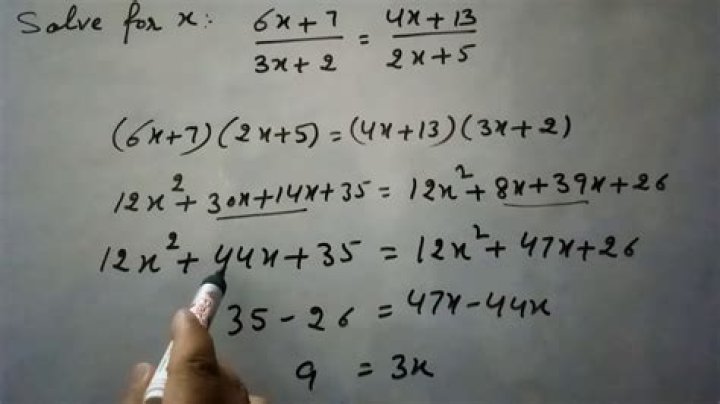 Solve for x: (6x+7)/(3x+2) = (4x+13)/(2x+5)
(6x+7)(2x+5)=(4x+13)(3x+2)
12x²+30x+14x+35 = 12x²+8x+39x+26
12x²+44x+35 = 12x²+47x+26
35-26 = 47x-44x
9 = 3x